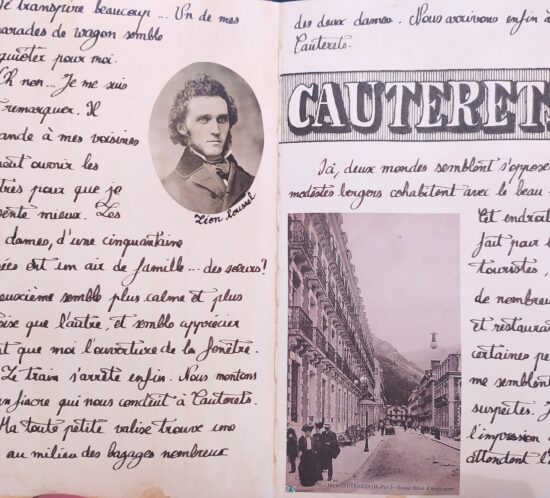 Je transpire beaucoup ... Un de mes
camarades de wagon semble
s'inquiéter pour moi.
Oh non... Je me suis
remarquer. Il
demande à mes voisines
ouvrir les
pour que je
sente mieux. Les
dames, d'une cinquantaine
années ont un air de famille ... des sœurs?
deuxième semble plus calme et plus
que l'autre, et semble apprécier
que moi l'ouverture de la fenêtre.
Le train s'arrête enfin. Nous montons
fiacre qui nous conduit à Cauterets.
Ma toute petite valise trouve une
au milieu des bagages nombreux
Léon Roussel
des deux dames. Nous arrivons enfin à
Cauterets.
CAUTERETS
Ici, deux mondes semblent s'opposer
modestes bergers cohabitent avec le beau
Cet endroit
fait pour
touristes,
de nombreux
et restaurants
certaines pe
me semblent
suspectes. J
l'impression
attendent l'
CAUTERETS (H.-Pyr.) - Grand Hôtel d'Angleterre